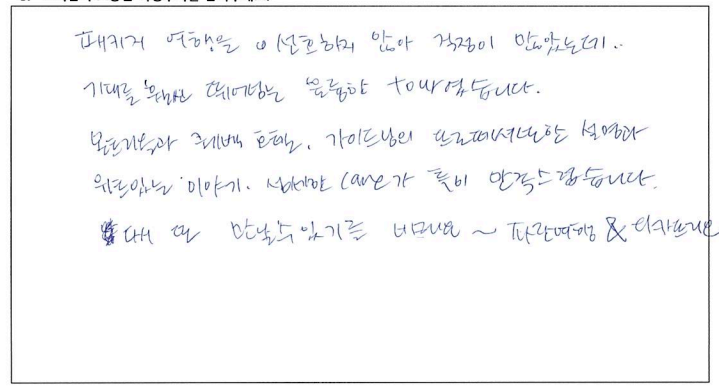 패키지 여행을 선호하지 않아 걱정이 많았는데..
기대를 훨씬 뛰어넘는 훌륭한 tour였습니다.
몬트리올과 퀘벡 호텔, 가이드님의 프로페셔널한 설명과
위트있는 이야기, 섬세한 care가 특히 만족스럽습니다.
다시 또 만날 수 있기를 바래요 ~ 파란여행 &